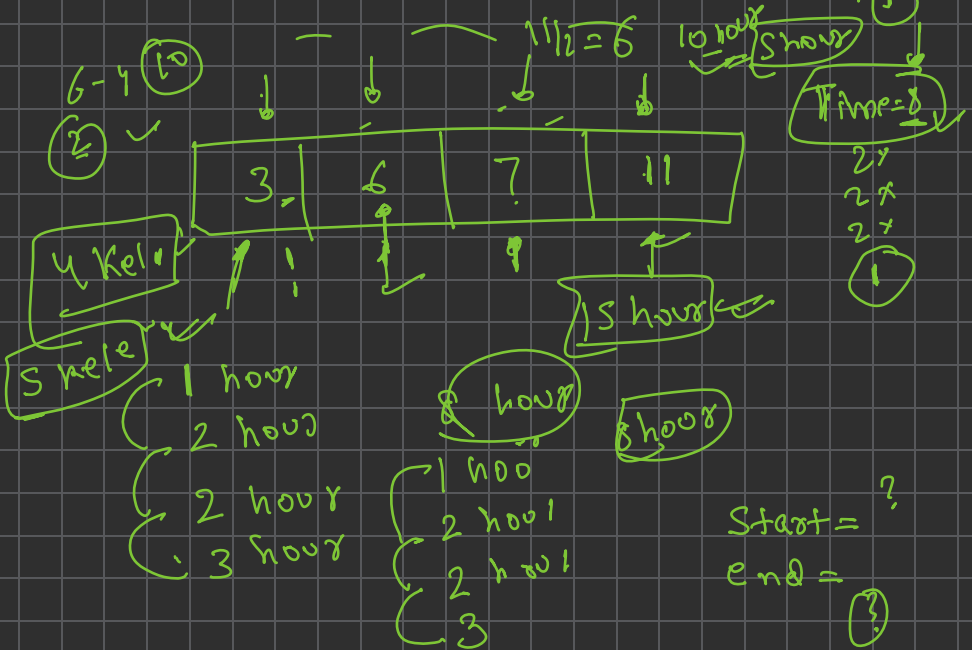 11/2 = 6
10 hour
5 hour
6-4
10
2
Time=8
2x
2x
2x
1
3 6 7 11
4 Kele
5 kele
15 hour
1 hour
2 hour
2 hour
3 hour
8 hour
1 hoo
2 hour
2 hour
3
8 hour
Start = ?
end = ?